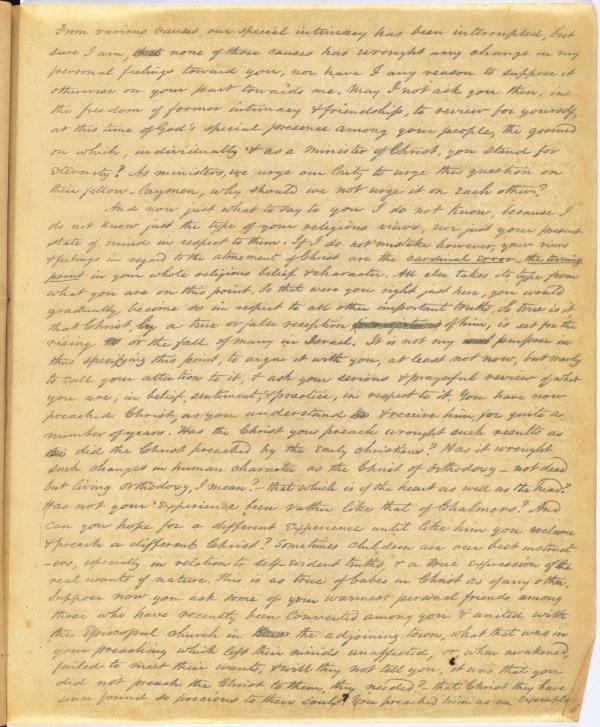 From various causes, our special intimacy has been interrupted, but
sure I am, that none of those causes has wrought any change in my
personal feelings toward you, nor have I any reason to suppose it
otherwise on your part towards me. May I not ask you then, in
the freedom of former intimacy & friendship, to review for yourself,
at this time of God's special presence among your people, the ground
on which, individually & as a minister of Christ, you stand for
Eternity? As ministers, we urge our laity to urge this question on
their fellow-laymen, why should we not urge it on each other?
And now just what to say to you I do not know, because I
do not know just the type of your religious views, nor just your present
state of mind in respect to them. If I do not mistake however, your views
& feelings in regard to the atonement of Christ are the cardinal error – the turning
point in your whole religious belief & character. All else takes its type from
what you are on this point. So that were you right just here, you would
gradually become so in respect to all other important truths. So true is it
that Christ, by a true or false reception of him, is set for the
rising or the fall of many in Israel. It is not my purpose in
thus specifying this point, to argue it with you, at least not now, but merely
to call your attention to it, & ask your serious & prayerful review of what
you are, in belief, sentiment, & practice, in respect to it. You have now
preached Christ, as you understand & receive him, for quite a
number of years. Has the Christ you preach wrought such results as
did the Christ preached by the early christians? Has it wrought
such changes in human character as the Christ of Orthodoxy – not dead
but living Orthodoxy, I mean? – that which is of the heart as well as the head?
Has not your experience been rather like that of Chalmers? And
can you hope for a different experience until like him you welcome
& preach a different Christ? Sometimes children are our best instruct
-ors, especially in relation to self-evident truths, & a true expression of the
real wants of nature. This is as true of babes in Christ as of any other.
Suppose now you ask some of your warmest personal friends among
those who have recently been converted among you & united with
the Episcopal church in the adjoining town, what that was in
your preaching which left their minds unaffected, or, when awakened,
failed to meet their wants, & will they not tell you, it was that you
did not preach the Christ to them, they needed? – that Christ they have
since found so precious to their souls? You preached him as an example